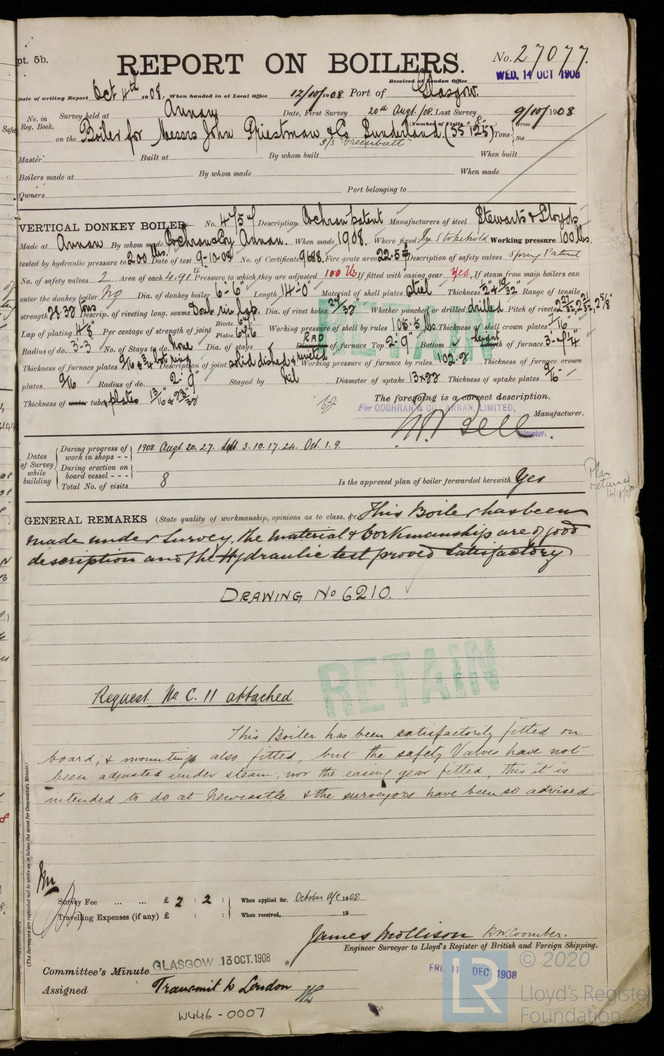 pt. 5b.
REPORT ON BOILERS.
No. 27077
Received at London Office
WED. 14 OCT 1908
Date of writing Report Oct 4th 1908. When handed in at Local Office 12/10/1908 Port of Glasgow
No. in Reg. Book.
Survey held at Annan Date, First Survey 20th Augt /08 Last Survey 9/10/1908
(Number of Visits 8)
on the Boiler for Messrs John Priestman & Co Sunderland (SS 125) Tons Gross Net
S/S
Master Built at By whom built When built
Boilers made at By whom made When made
Owners Port belonging to
VERTICAL DONKEY BOILER No. 4757 Description Cochran patent Manufacturers of steel Stewarts & Lloyds
Made at Annan By whom made Cochran & Co Annan. When made 1908. Where fixed In Stokehold Working pressure 100 lbs
tested by hydraulic pressure to 200 lbs. Date of test 9-10-08 No. of Certificate 9468. Fire grate area 22.5 Description of safety valves Spring Patent
No. of safety valves 2 Area of each 4.91 Pressure to which they are adjusted 100 lbs If fitted with easing gear Yes. If steam from main boilers can
enter the donkey boiler No Dia. of donkey boiler 6'-6" Length 14'-0" Material of shell plates steel Thickness Range of tensile
strength 28.32 tons Descrip. of riveting long. seams Doub riv lap. Dia. of rivet holes Whether punched or drilled drilled Pitch of rivets
Lap of plating Per centage of strength of joint Rivets Plates Working pressure of shell by rules 108.5 lbs Thickness of shell crown plates 9/16
Radius of do. 3-3 No. of Stays to do. None Dia. of stays of furnace Top 2'-9" Bottom of furnace
Thickness of furnace plates Description of joint solid dished & Working pressure of furnace by rules 102.2 Thickness of furnace crown
plates 9/16 Radius of do. 2'-9" Stayed by Nil Diameter of uptake 13 Thickness of uptake plates 9/16
Thickness of water tubes plates
The foregoing is a correct description,
For COCHRAN & CO. ANNAN, LIMITED,
Manufacturer.
Dates of Survey while building
During progress of work in shops - - 1908 Augt 20. 27. Sept 3. 10. 17. 24. Oct. 1. 9.
During erection on board vessel - - -
Total No. of visits 8
Is the approved plan of boiler forwarded herewith Yes
Plan returned
GENERAL REMARKS (State quality of workmanship, opinions as to class, &c. This Boiler has been
made under Survey, the material & Workmanship are of good
description and the Hydraulic test proved Satisfactory
DRAWING No 6210.
RETAIN
RETAIN
Request No C. 11 attached
This Boiler has been satisfactorily fitted on
board, & mountings also fitted, but the safety Valves have not
been adjusted under steam, nor the easing gear fitted, this it is
intended to do at Newcastle & the surveyors have been so advised
Survey Fee ... ... £ 2 : 2 : When applied for, October 1908
Travelling Expenses (if any) £ : : When received, 19
James Mollison
Engineer Surveyor to Lloyd's Register of British and Foreign Shipping.
Committee's Minute GLASGOW 13 OCT. 1908
FRI. 11 DEC 1908
Assigned Transmit to London
W446-0007
© 2020
LR
Lloyd's Register
Foundation